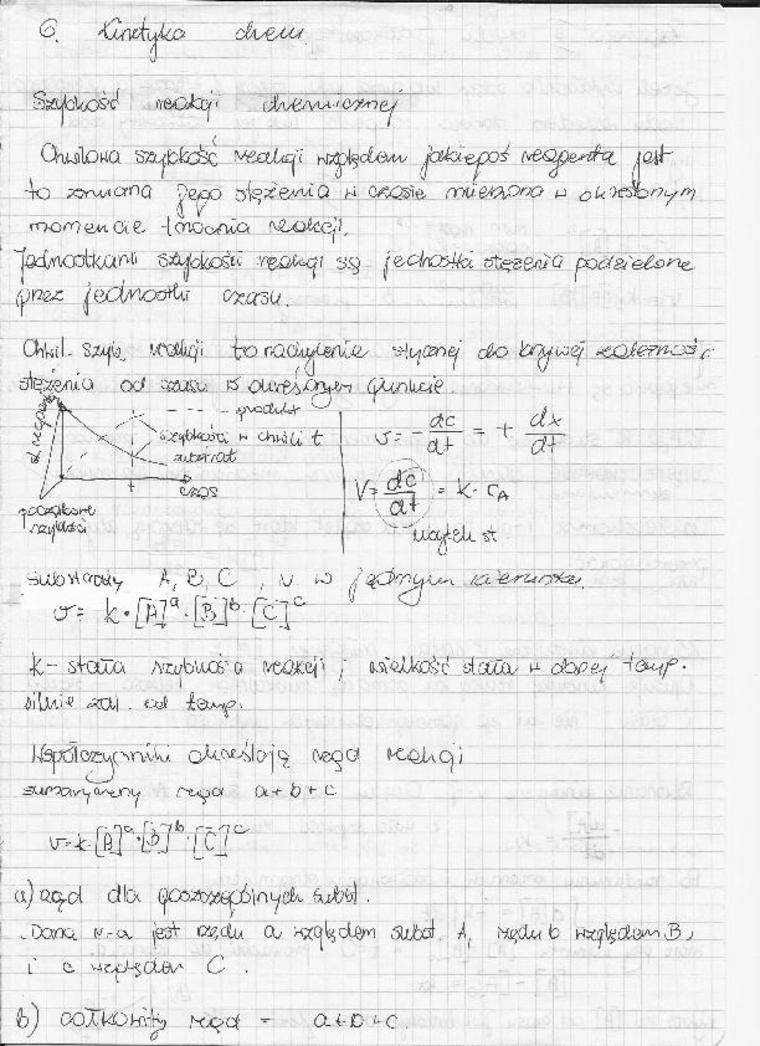 6. Kinetyka chem.
Szybkość reakcji chemicznej
Chwilowa szybkość reakcji względem jakiegoś reagenta jest
to zmiana jego stężenia w czasie mierzona w określonym
momencie trwania reakcji.
Jednostkami szybkości reakcji są jednostki stężenia podzielone
przez jednostki czasu.
Chwil. szyb. reakcji to nachylenie stycznej do krzywej zależnośc.
stężenia od czasu w określonym punkcie
- - - - produkt
szybkości w chwili t
substrat
st. reagenta
t
czas
początkowe
szybkości
v = - dc/dt = + dx/dt
V = dc/dt = k · cA
substraty A, B, C, w jednym kierunku.
v = k · [A]^a · [B]^b · [C]^c
k - stała szybkości reakcji ; wielkość stała w danej temp.
silnie zal. od temp.
Współczynniki określają rząd reakcji
sumaryczny rząd a + b + c
v = k · [A]^a · [B]^b · [C]^c
a) rząd dla poszczególnych subst.
Dana r-a jest rzędu a względem subst. A, rzędu b względem B,
i c względem C.
b) całkowity rząd = a + b + c.